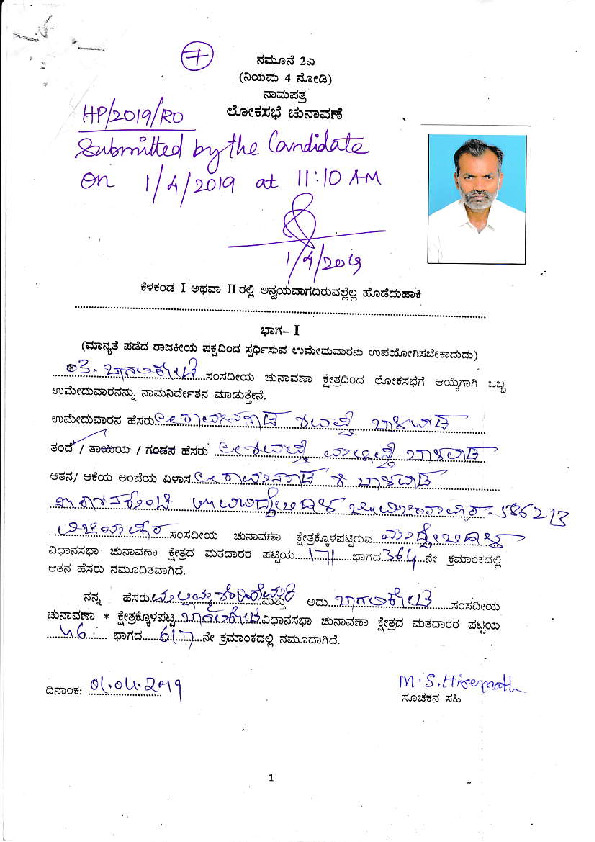 7
ನಮೂನೆ 2ಎ
(ನಿಯಮ 4 ನೋಡಿ)
ನಾಮಪತ್ರ
ಲೋಕಸಭೆ ಚುನಾವಣೆ
HP/2019/RO
Submitted by the Candidate
on 1/4/2019 at 11:10 AM
1/4/2019
ಕೆಳಕಂಡ I ಅಥವಾ II ರಲ್ಲಿ ಅನ್ವಯವಾಗದಿರುವಲ್ಲೆಲ್ಲ ಹೊಡೆದುಹಾಕಿ
ಭಾಗ- I
(ಮಾನ್ಯತೆ ಪಡೆದ ರಾಜಕೀಯ ಪಕ್ಷದಿಂದ ಸ್ಪರ್ಧಿಸುವ ಉಮೇದುವಾರನು ಉಪಯೋಗಿಸಬೇಕಾದುದು)
03. ಬಾಗಲಕೋಟೆ ಸಂಸದೀಯ ಚುನಾವಣಾ ಕ್ಷೇತ್ರದಿಂದ ಲೋಕಸಭೆಗೆ ಆಯ್ಕೆಗಾಗಿ ಒಬ್ಬ
ಉಮೇದುವಾರನನ್ನು ನಾಮನಿರ್ದೇಶನ ಮಾಡುತ್ತೇನೆ.
ಉಮೇದುವಾರನ ಹೆಸರು ಬಾಳವಾಡ
ತಂದೆ / ತಾಯಿಯ / ಗಂಡನ ಹೆಸರು ಬಾಳವಾಡ
ಆತನ/ ಆಕೆಯ ಅಂಚೆಯ ವಿಳಾಸ ಬಾಳವಾಡ
586213
ವಿಜಯಪುರ ಸಂಸದೀಯ ಚುನಾವಣಾ ಕ್ಷೇತ್ರಕ್ಕೊಳಪಟ್ಟಿರುವ ಮುದ್ದೇಬಿಹಾಳ
ವಿಧಾನಸಭಾ ಚುನಾವಣಾ ಕ್ಷೇತ್ರದ ಮತದಾರರ ಪಟ್ಟಿಯ 171 ಭಾಗದ 364 ನೇ ಕ್ರಮಾಂಕದಲ್ಲಿ
ಆತನ ಹೆಸರು ನಮೂದಿತವಾಗಿದೆ.
ನನ್ನ ಹೆಸರು ಅದು ಬಾಗಲಕೋಟೆ ಸಂಸದೀಯ
ಚುನಾವಣಾ * ಕ್ಷೇತ್ರಕ್ಕೊಳಪಟ್ಟ ಬಾಗಲಕೋಟೆ ವಿಧಾನಸಭಾ ಚುನಾವಣಾ ಕ್ಷೇತ್ರದ ಮತದಾರರ ಪಟ್ಟಿಯ
ಭಾಗದ 617 ನೇ ಕ್ರಮಾಂಕದಲ್ಲಿ ನಮೂದಾಗಿದೆ.
ದಿನಾಂಕ: 01.04.2019
M. S. Hiremath
ಸೂಚಕನ ಸಹಿ
1